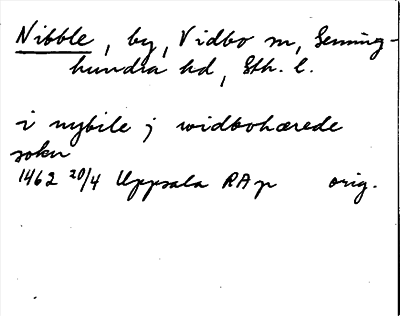 Nibble, by, Vidbo sn, Seming-
hundra hd, Sth. l.
i nybile j widbohærede
sokn
1462 20/4 Uppsala RAp orig.